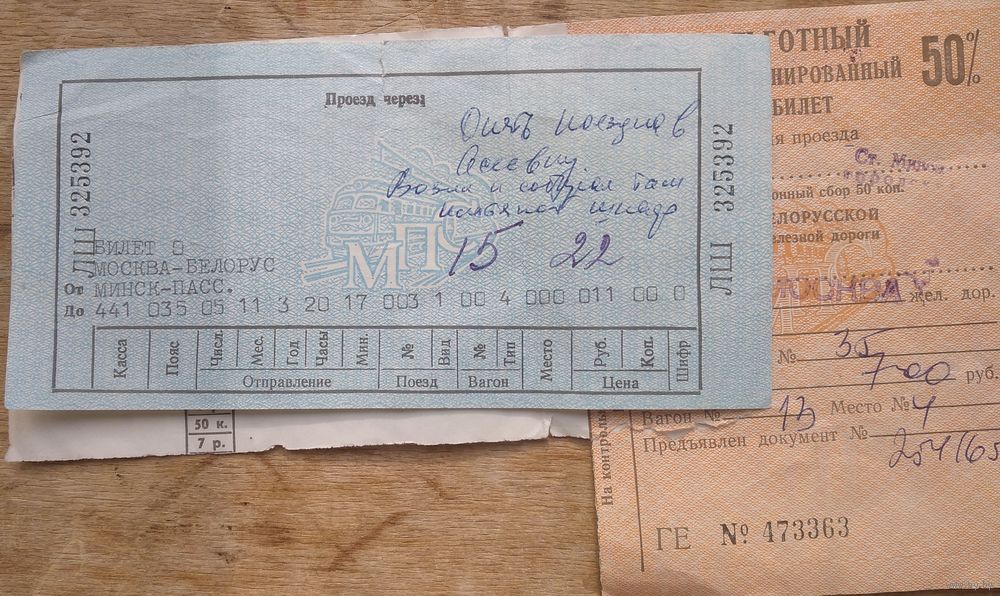 Проезд через:
Опять поездка в
Возил и собирал там
шкаф
15 22
ЛШ 325392
ЛШ 325392
БИЛЕТ 0
МОСКВА-БЕЛОРУС
От МИНСК-ПАСС.
До 441 035 05 11 3 20 17 003 1 00 4 000 011 00 0
Касса Пояс Числ. Мес. Год Часы Мин. № Вид № Тип Место Руб. Коп. Шифр
Отправление Поезд Вагон Цена
50 к.
7 р.
ГОТНЫЙ
НИРОВАННЫЙ
50%
БИЛЕТ
я проезда
Ст. Минск
онный сбор 50 коп.
ЕЛОРУССКОЙ
лезной дороги
МОСКВА
жел. дор.
№ 35
7-00 руб.
Вагон № 13 Место № 4
Предъявлен документ №
254165
На контроль
ГЕ № 473363